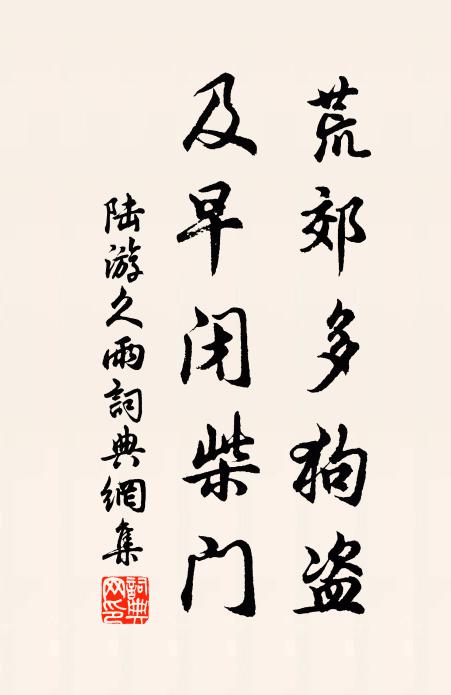 荒郊多狗盗
及早闭柴门
陆游久雨詞典網集
詞典
网印